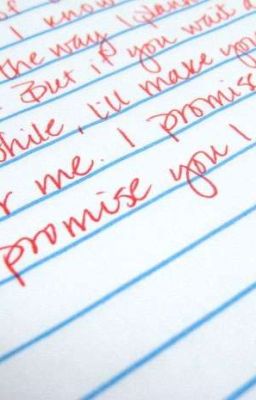 I know
the way I plann
But if you wait a
while, i'll make you
r me. I promise
promise you I